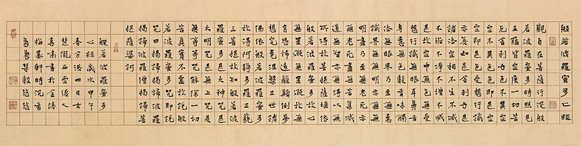 般若波羅蜜多心經
觀自在菩薩行深般
若波羅蜜多時照見
五蘊皆空度一切苦
厄舍利子色不異空
空不異色色即是空
空即是色受想行識
亦復如是舍利子是
諸法空相不生不滅
不垢不淨不增不減
是故空中無色無受
想行識無眼耳鼻舌
身意無色聲香味觸
法無眼界乃至無意
識界無無明亦無無
明盡乃至無老死亦
無老死盡無苦集滅
道無智亦無得以無
所得故菩提薩埵依
般若波羅蜜多故心
無罣礙無罣礙故無
有恐怖遠離顛倒夢
想究竟涅槃三世諸
佛依般若波羅蜜多
故得阿耨多羅三藐
三菩提故知般若波
羅蜜多是大神咒是
大明咒是無上咒是
無等等咒能除一切
苦真實不虛故說般
若波羅蜜多咒即說
咒曰揭諦揭諦波羅
揭諦波羅僧揭諦菩
提薩婆訶
般若波羅蜜多
心經 歲次甲午